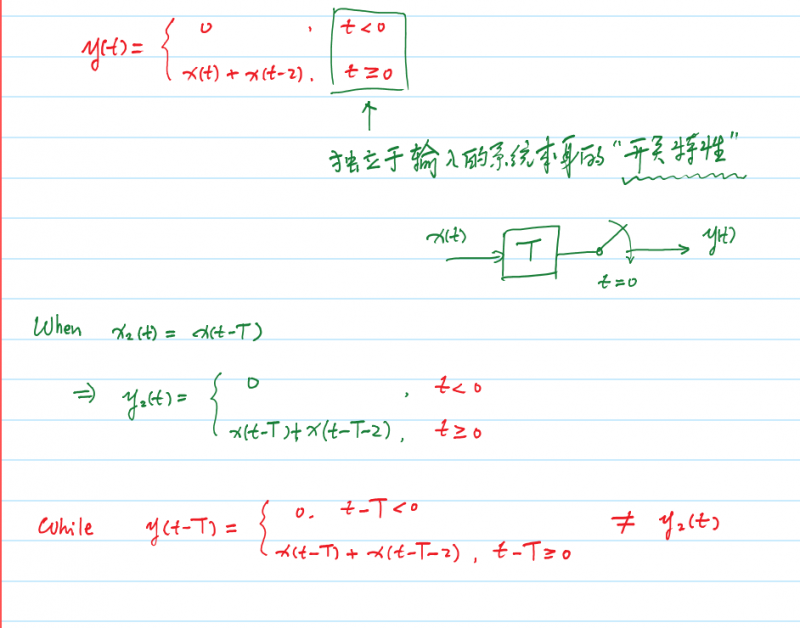 y(t) = { 0 , t < 0
x(t) + x(t-2). t ≥ 0
↑
独立于输入的系统本身的“开关特性”
x(t) T y(t)
t=0
When x₂(t) = x(t-T)
⇒ y₂(t) = { 0 , t < 0
x(t-T) + x(t-T-2), t ≥ 0
While y(t-T) = { 0. t-T < 0 ≠ y₂(t)
x(t-T) + x(t-T-2), t-T ≥ 0